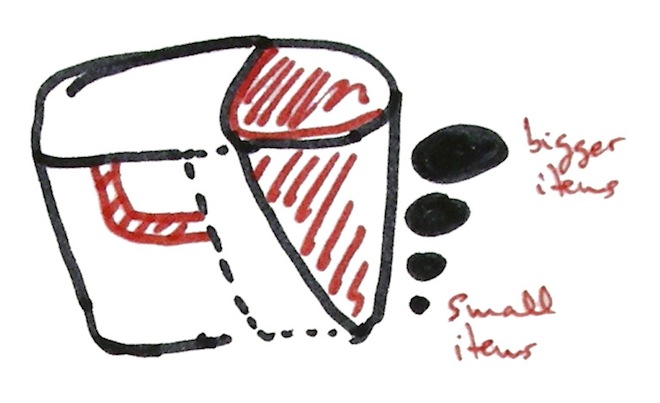 bigger
items
small
items